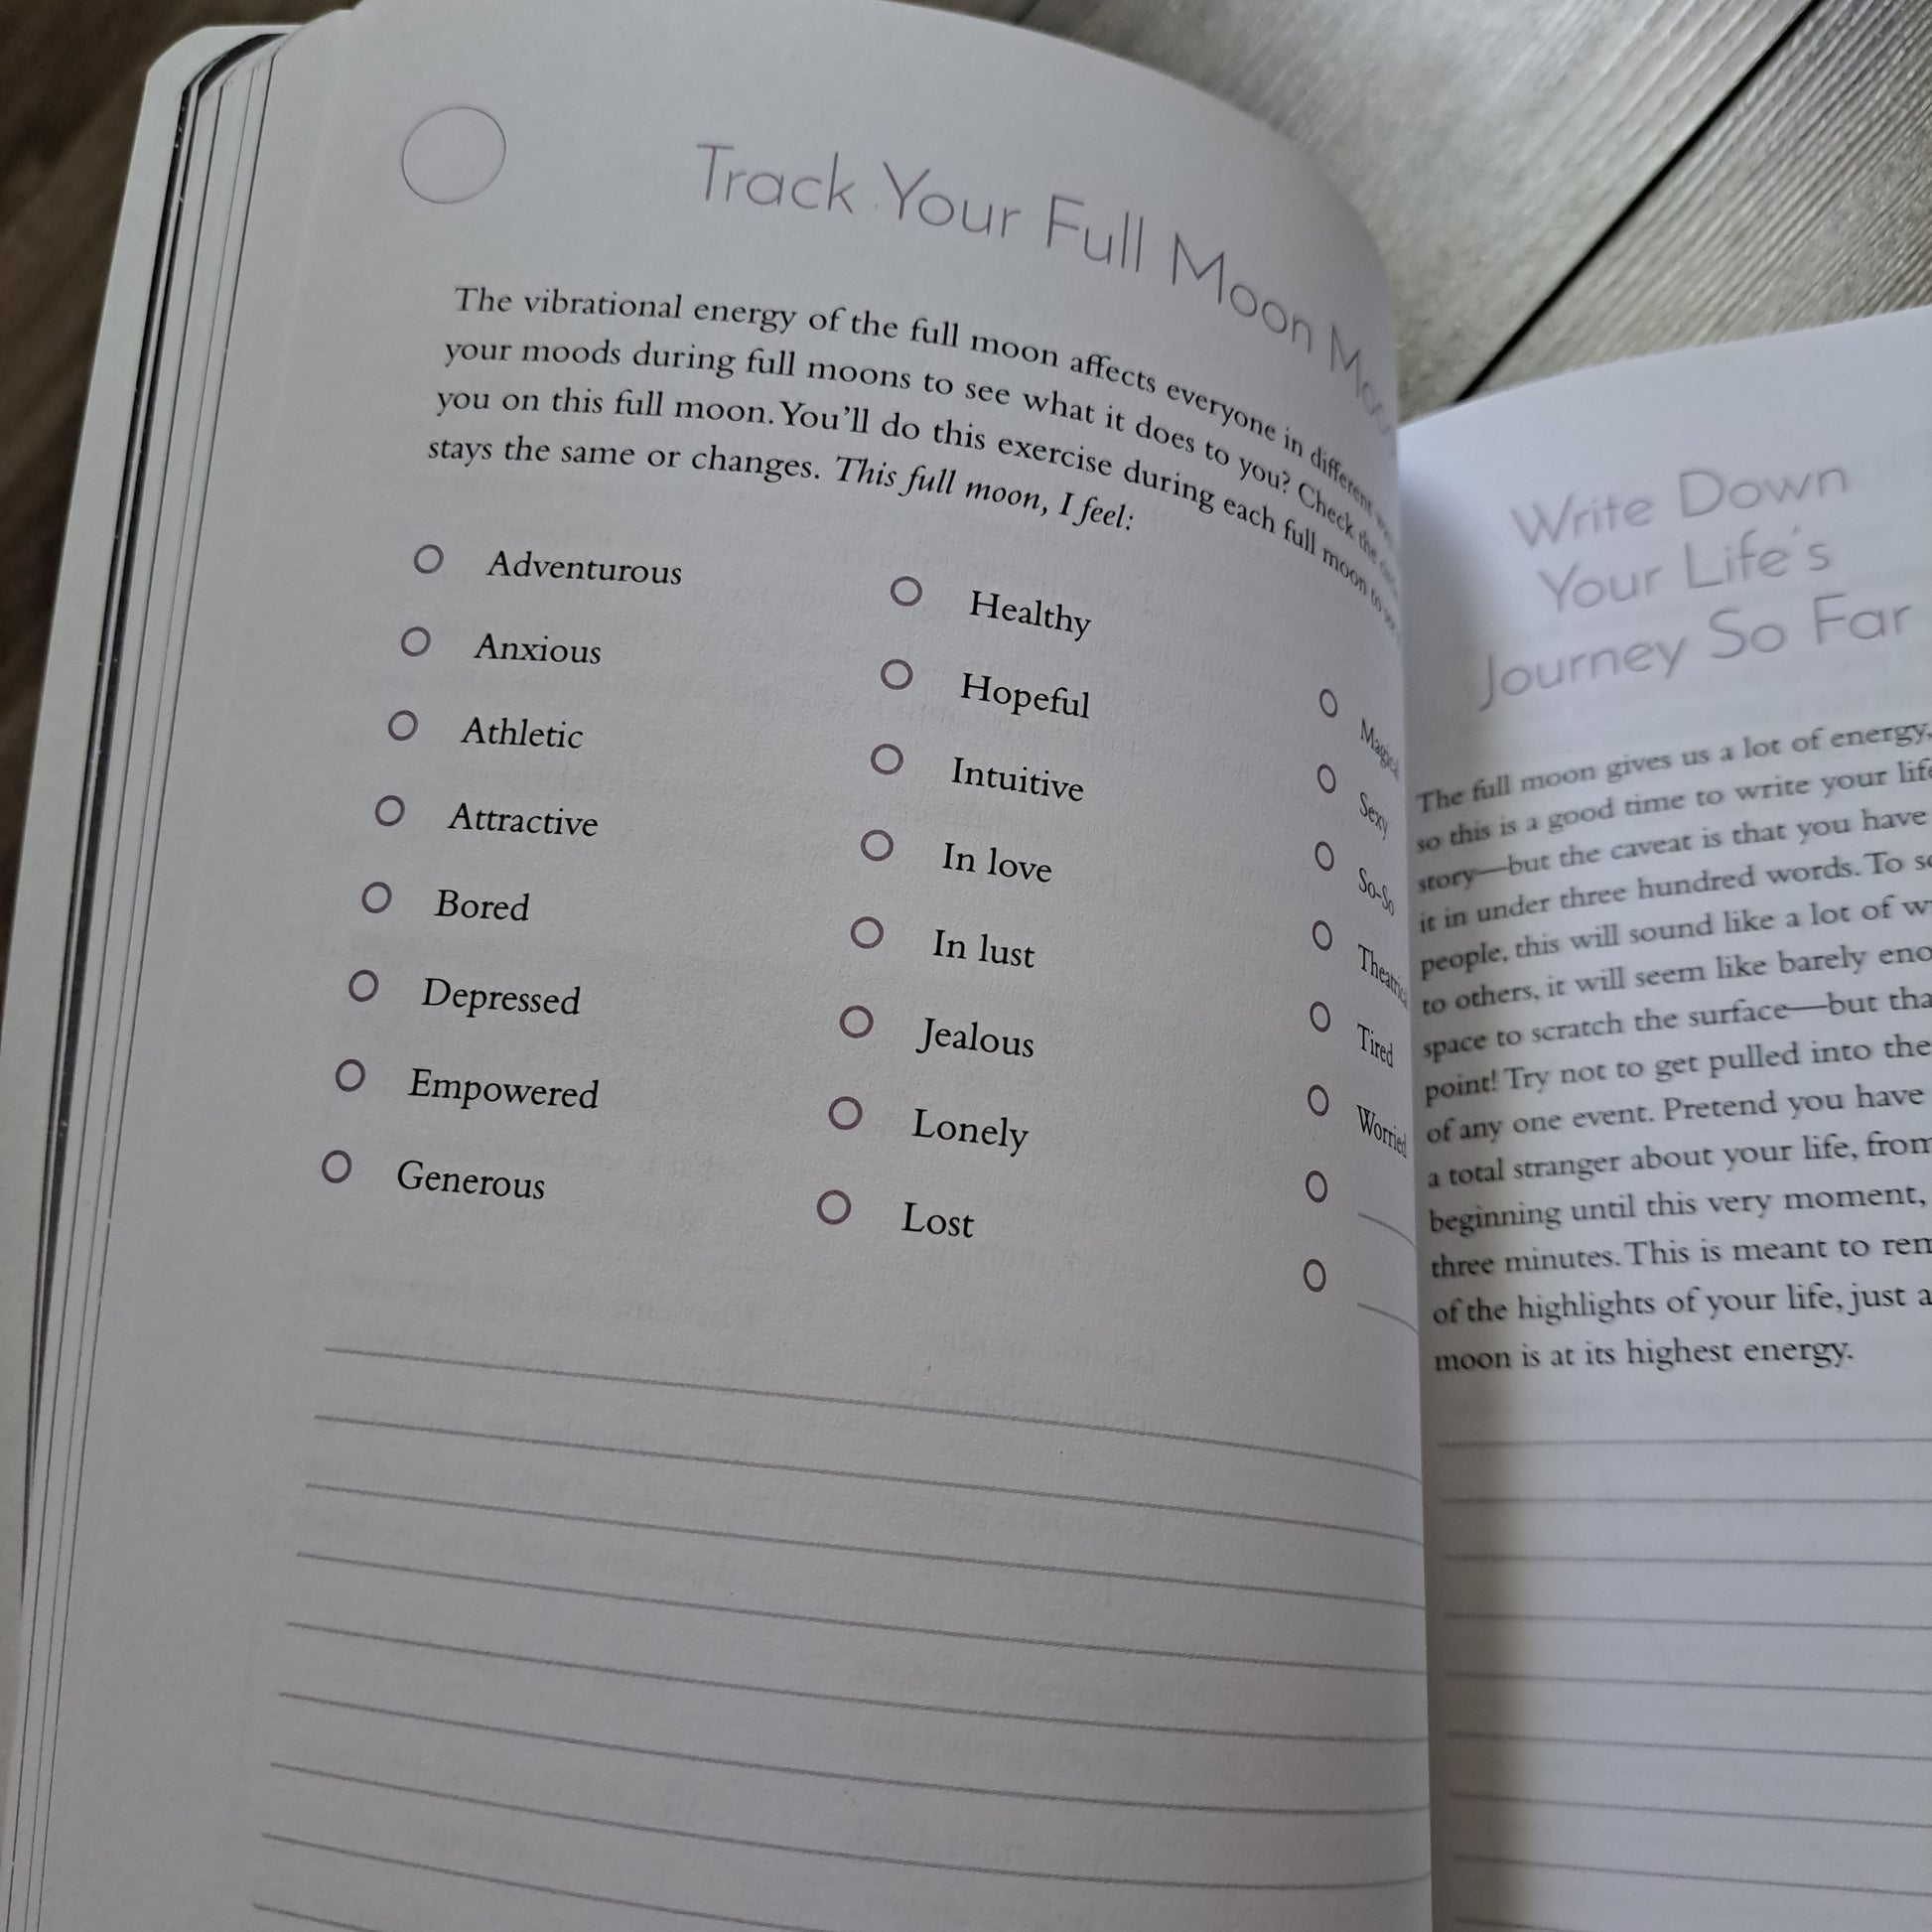 Track Your Full Moon
The vibrational energy of the full moon affects everyone in different
your moods during full moons to see what it does to you? Check the
you on this full moon. You'll do this exercise during each full moon to
stays the same or changes. This full moon, I feel:
Adventurous
Anxious
Athletic
Attractive
Bored
Depressed
Empowered
Generous
Healthy
Hopeful
Intuitive
In love
In lust
Jealous
Lonely
Lost
Magical
Sexy
So-So
Theatrical
Tired
Worried
Write Down
Your Life's
Journey So Far
The full moon gives us a lot of energy,
so this is a good time to write your
story—but the caveat is that you have
it in under three hundred words. To
people, this will sound like a lot of
to others, it will seem like barely
space to scratch the surface—but
point! Try not to get pulled into the
of any one event. Pretend you have
a total stranger about your life, from
beginning until this very moment,
three minutes. This is meant to
of the highlights of your life, just
moon is at its highest energy.